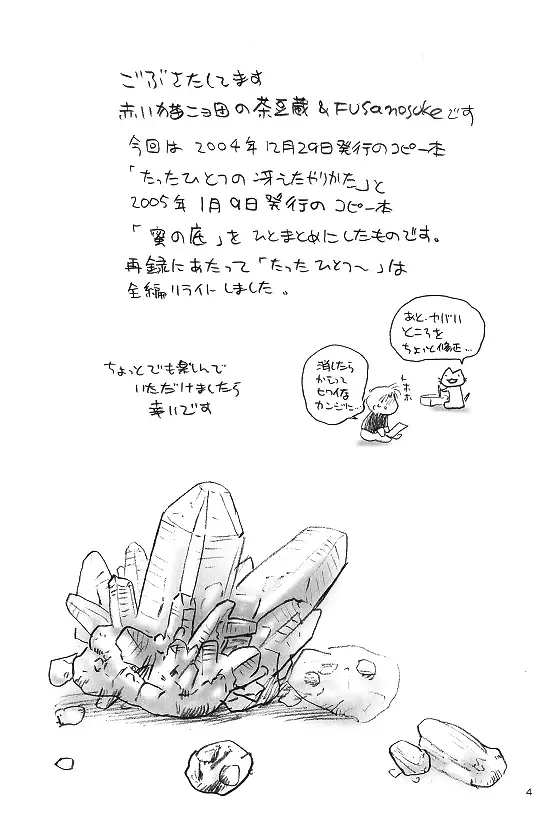 ごぶさたしてます
赤い猫ニョ田の茶豆蔵&FUSanosukeです
今回は2004年12月29日発行のコピー本
「たったひとつの冴えたやりかた」と
2005年1月9日発行のコピー本
「蜜の底」をひとまとめにしたものです。
再録にあたって「たったひとつ〜」は
全編リライトしました。
あと、ヤバい
ところを
ちょっと修正…
消したら
かえって
ヒワイな
カンジに…
トホホ
ちょっとでも楽しんで
いただけましたら
幸いです
4